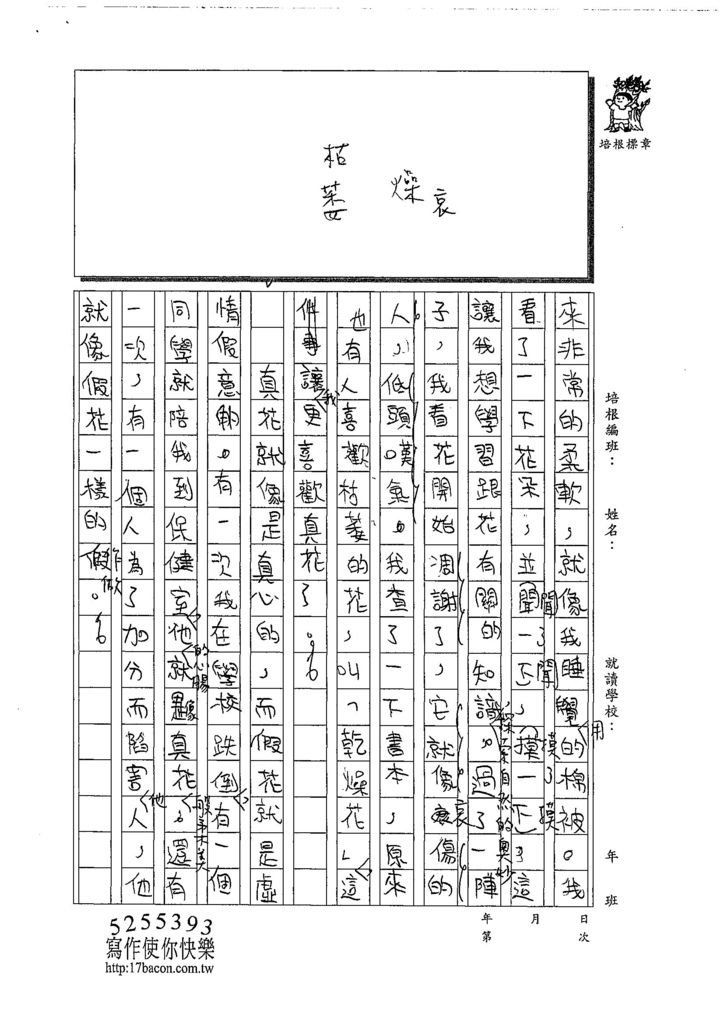 培根標章
枯萎
燥
哀
培根編班：
姓名：
就讀學校：
年 班
來非常的柔軟，就像我睡覺的棉被。我
用
看了一下花朵，並聞一下，摸一下，這
聞了聞
摸了摸
讓我想學習跟花有關的知識。過了一陣
探索自然的奧妙
子，我看花開始凋謝了，它就像哀傷的
哀
人，低頭嘆氣。我查了一下書本，原來
也有人喜歡枯萎的花，叫「乾燥花」這
件事讓更喜歡真花了。
我
真花就像是真心的，而假花就是虛
情假意的。有一次我在學校跌倒有一個
，
同學就陪我到保健室他就像真花。還有
的心腸
一般美
一次，有一個人為了加分而陷害人，他
他
就像假花一樣的假。
作做
年 月 日
第 次
5255393
寫作使你快樂
http:17bacon.com.tw